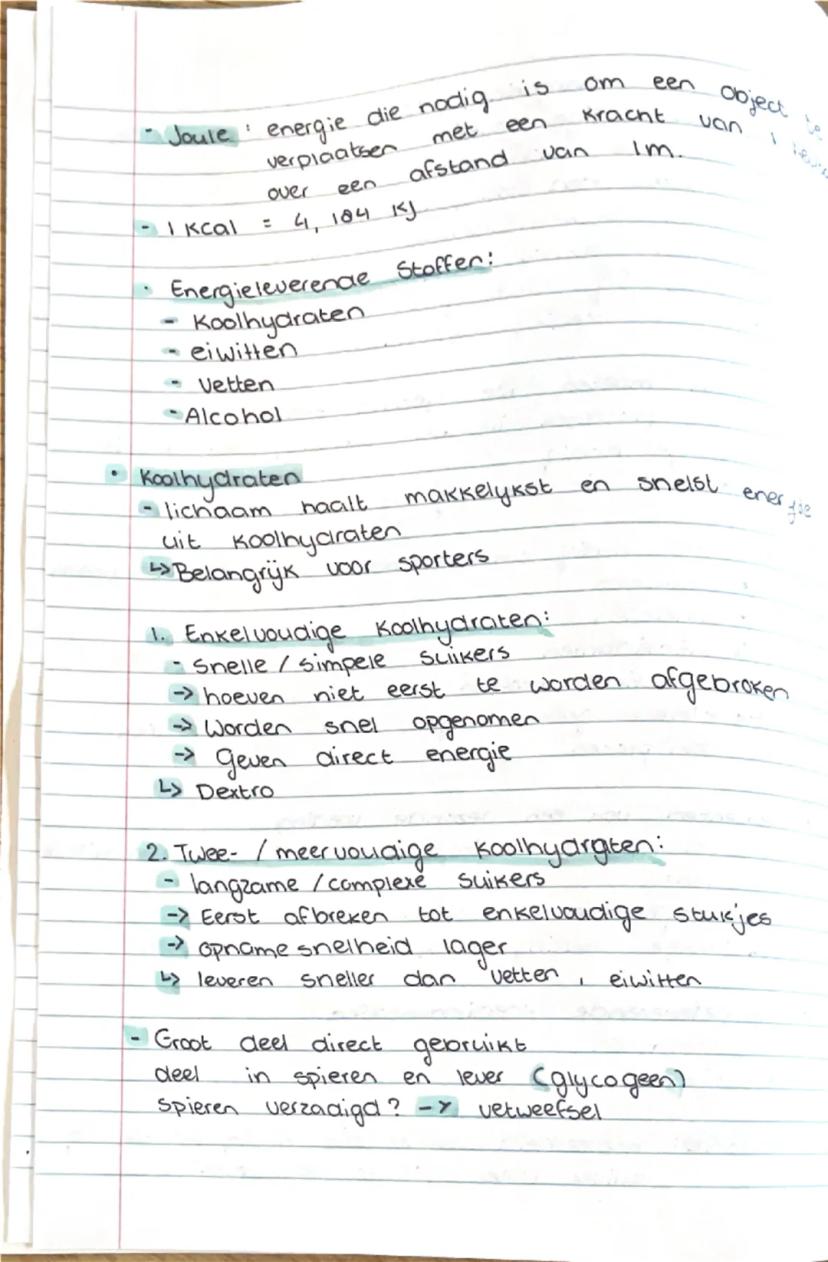 - Joule : energie die nodig is om een object te
verplaatsen met een kracht van 1
over een afstand van 1m.
- 1 Kcal = 4,184 KJ
· Energieleverende Stoffen:
- Koolhydraten
- eiwitten
- Vetten
- Alcohol
• Koolhydraten
- lichaam haalt makkelykst en snelst energie
uit koolhydraten
↳ Belangrijk voor sporters
1. Enkelvoudige Koolhydraten:
- Snelle / simpele suikers
-> hoeven niet eerst te worden afgebroken
-> Worden snel opgenomen
-> Geven direct energie
↳ Dextro
2. Twee- / meervoudige Koolhydraten:
- langzame / complexe suikers
-> Eerst afbreken tot enkelvoudige stukjes
-> opname snelheid lager
↳ leveren sneller dan vetten, eiwitten
- Groot deel direct gebruikt
deel in spieren en lever (glycogeen)
spieren verzadigd? -> vetweefsel